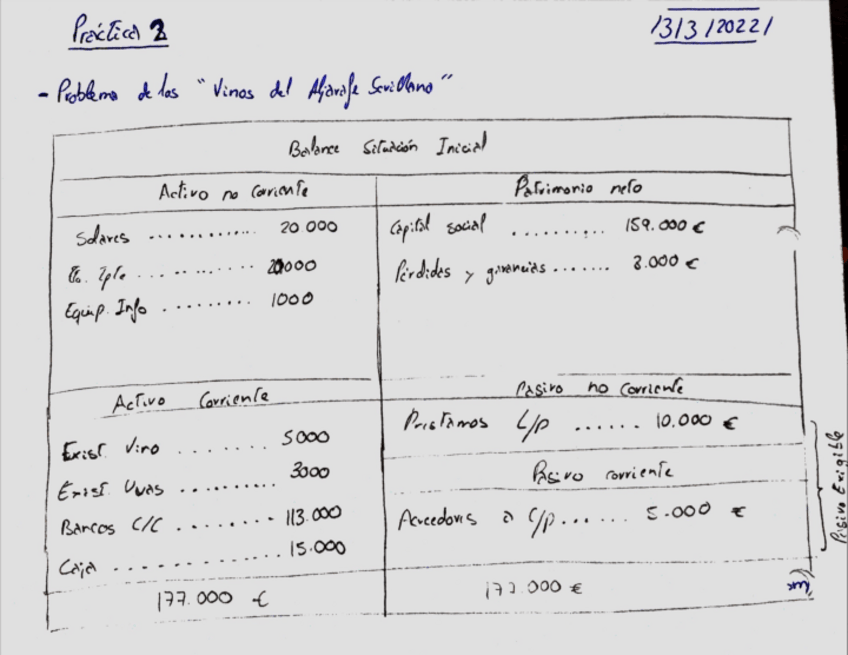 Práctica
13/3/2022/
- Problema de los "Vinos del Aljarafe Sevillano"
Balance Situación Inicial
Activo no corriente
Solares ............ 20 000
............ 20000
Equip. Info ......... 1000
Patrimonio neto
Capital social .......... 159.000 €
Pérdidas y ganancias ....... 3.000 €
Activo Corriente
Exist. Vino ....... 5000
Exist. Uvas .........
3000
Bancos C/C ........ 113.000
Caja ............. 15.000
177.000 €
Pasivo no corriente
Prestamos L/p ...... 10.000 €
Pasivo corriente
Acreedores a C/p ...... 5.000 €
177.000 €
Pasivo Exigible